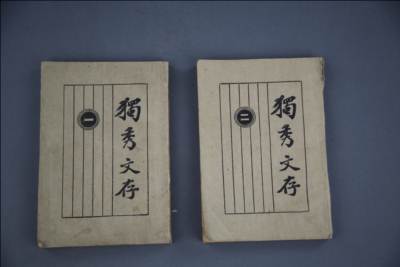 獨秀文存
一
獨秀文存
二